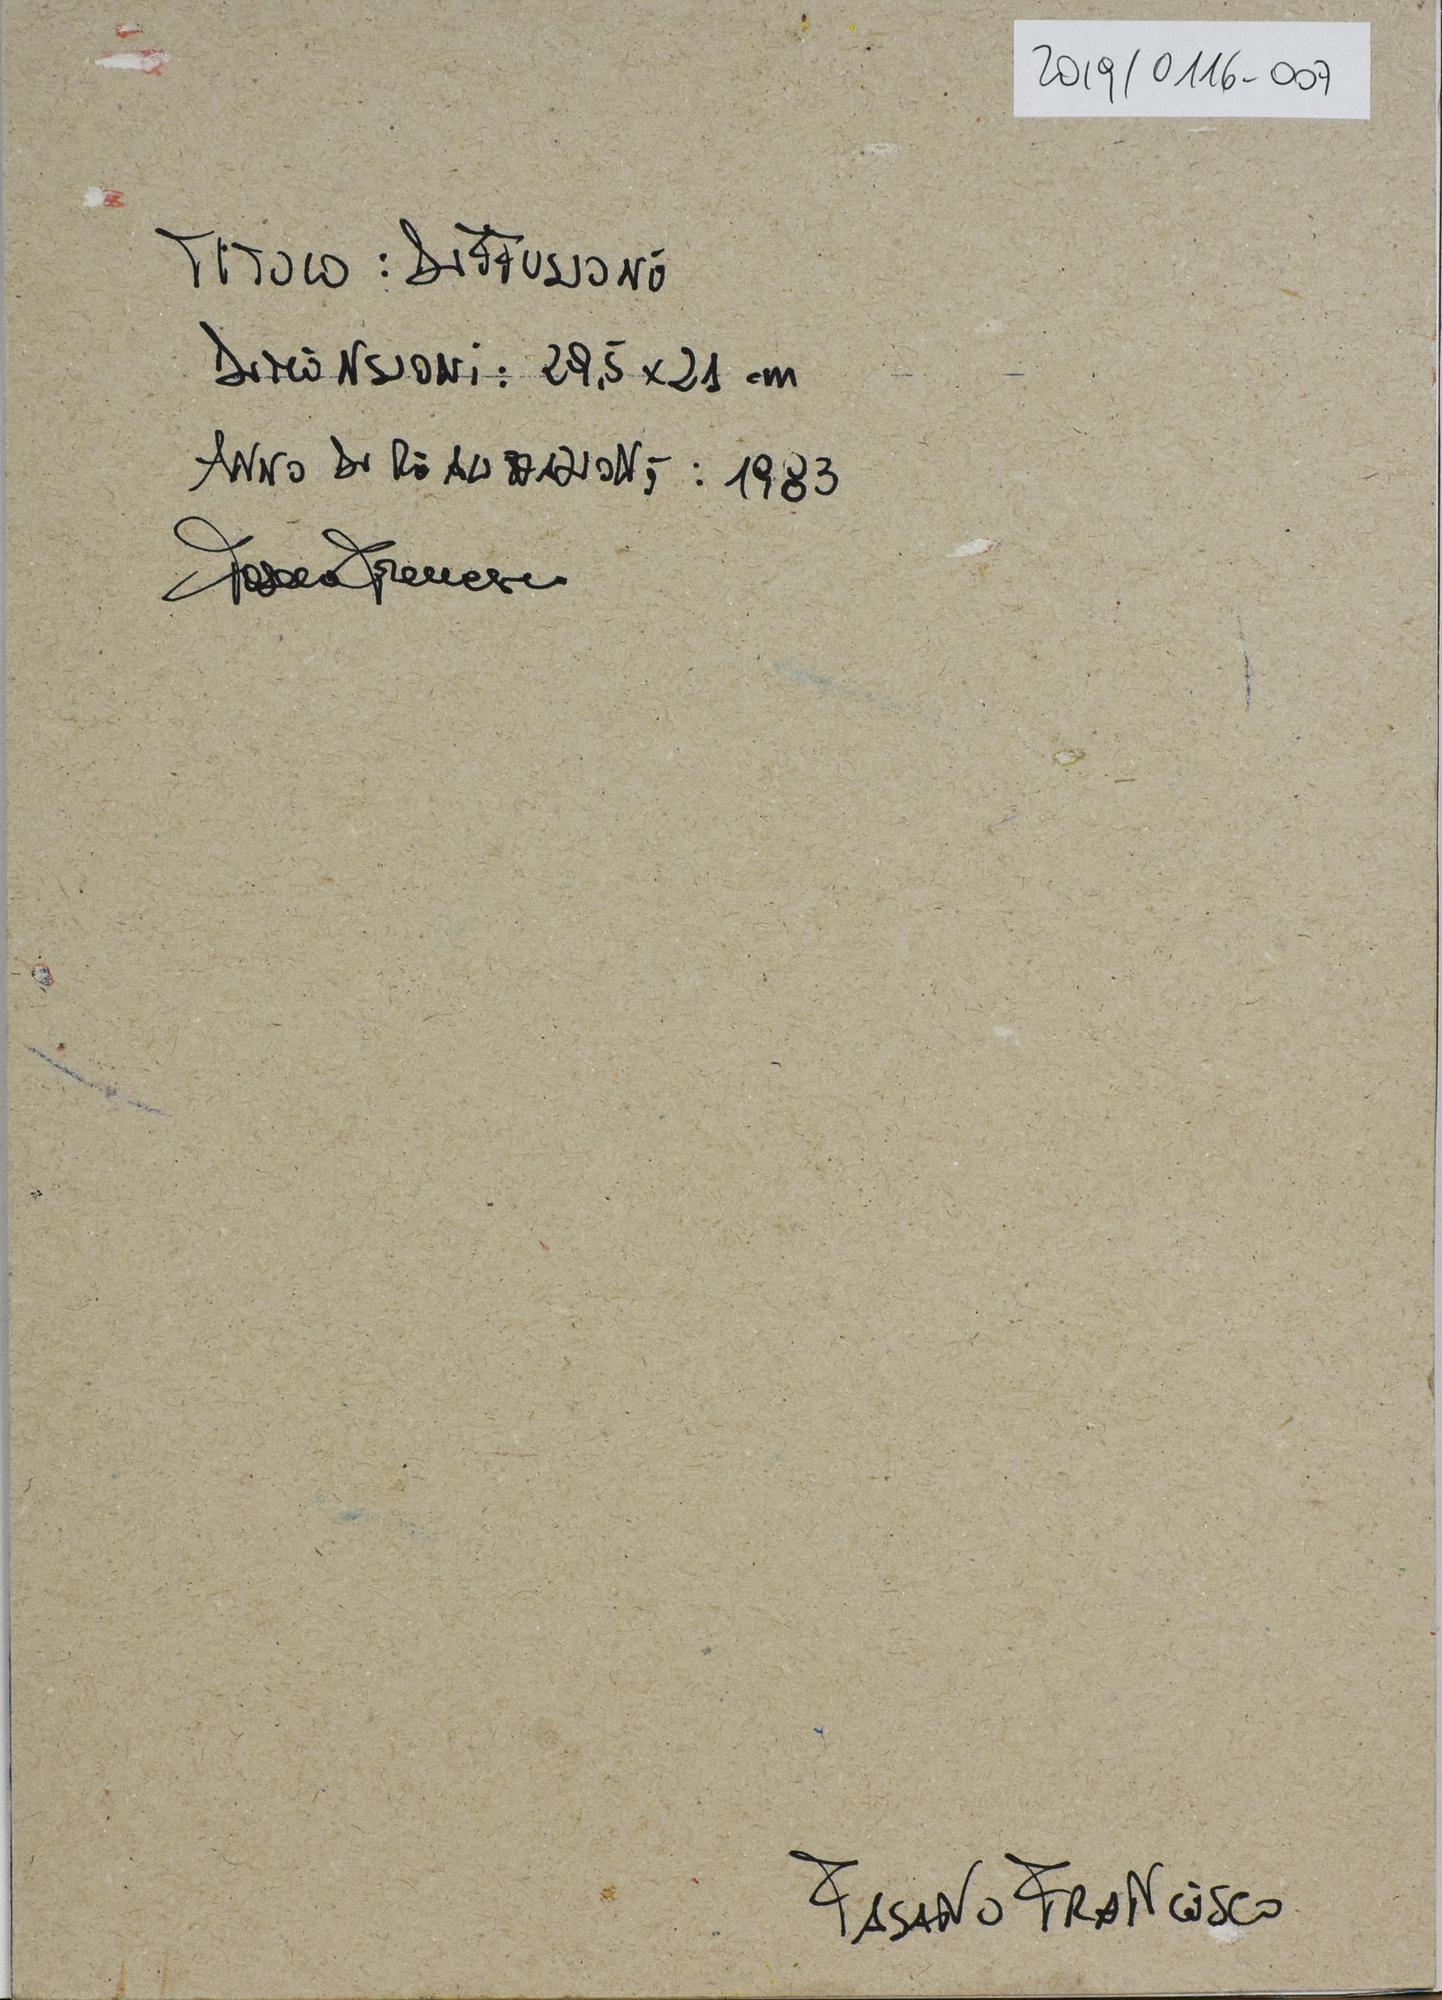 2019/0116-007
TITOLO : DIFFUSIONE
DIMENSIONI : 29,5 x 21 cm
ANNO DI REALIZZAZIONE : 1983
Fasano Francesco
FASANO FRANCESCO